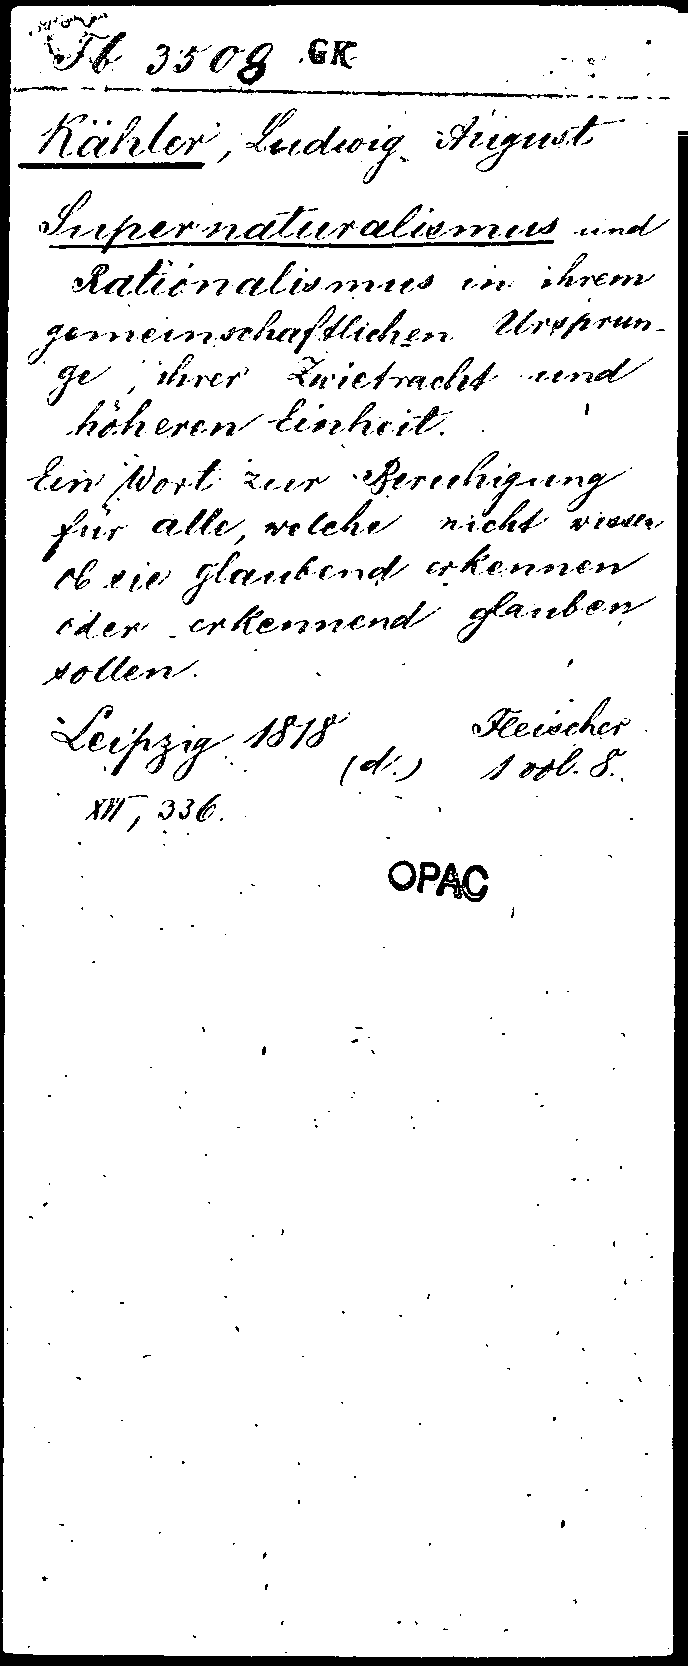 Tb 3508 GK
Kähler, Ludwig August
Supernaturalismus und
Rationalismus in ihrem
gemeinschaftlichen Ursprun-
ge, ihrer Zwietracht und
höheren Einheit.
Ein Wort zur Beruhigung
für alle, welche nicht wissen
ob sie glaubend erkennen
oder erkennend glauben
sollen.
Leipzig 1818 Fleischer
(d.) 1 vol. 8.
XII, 336.
OPAC